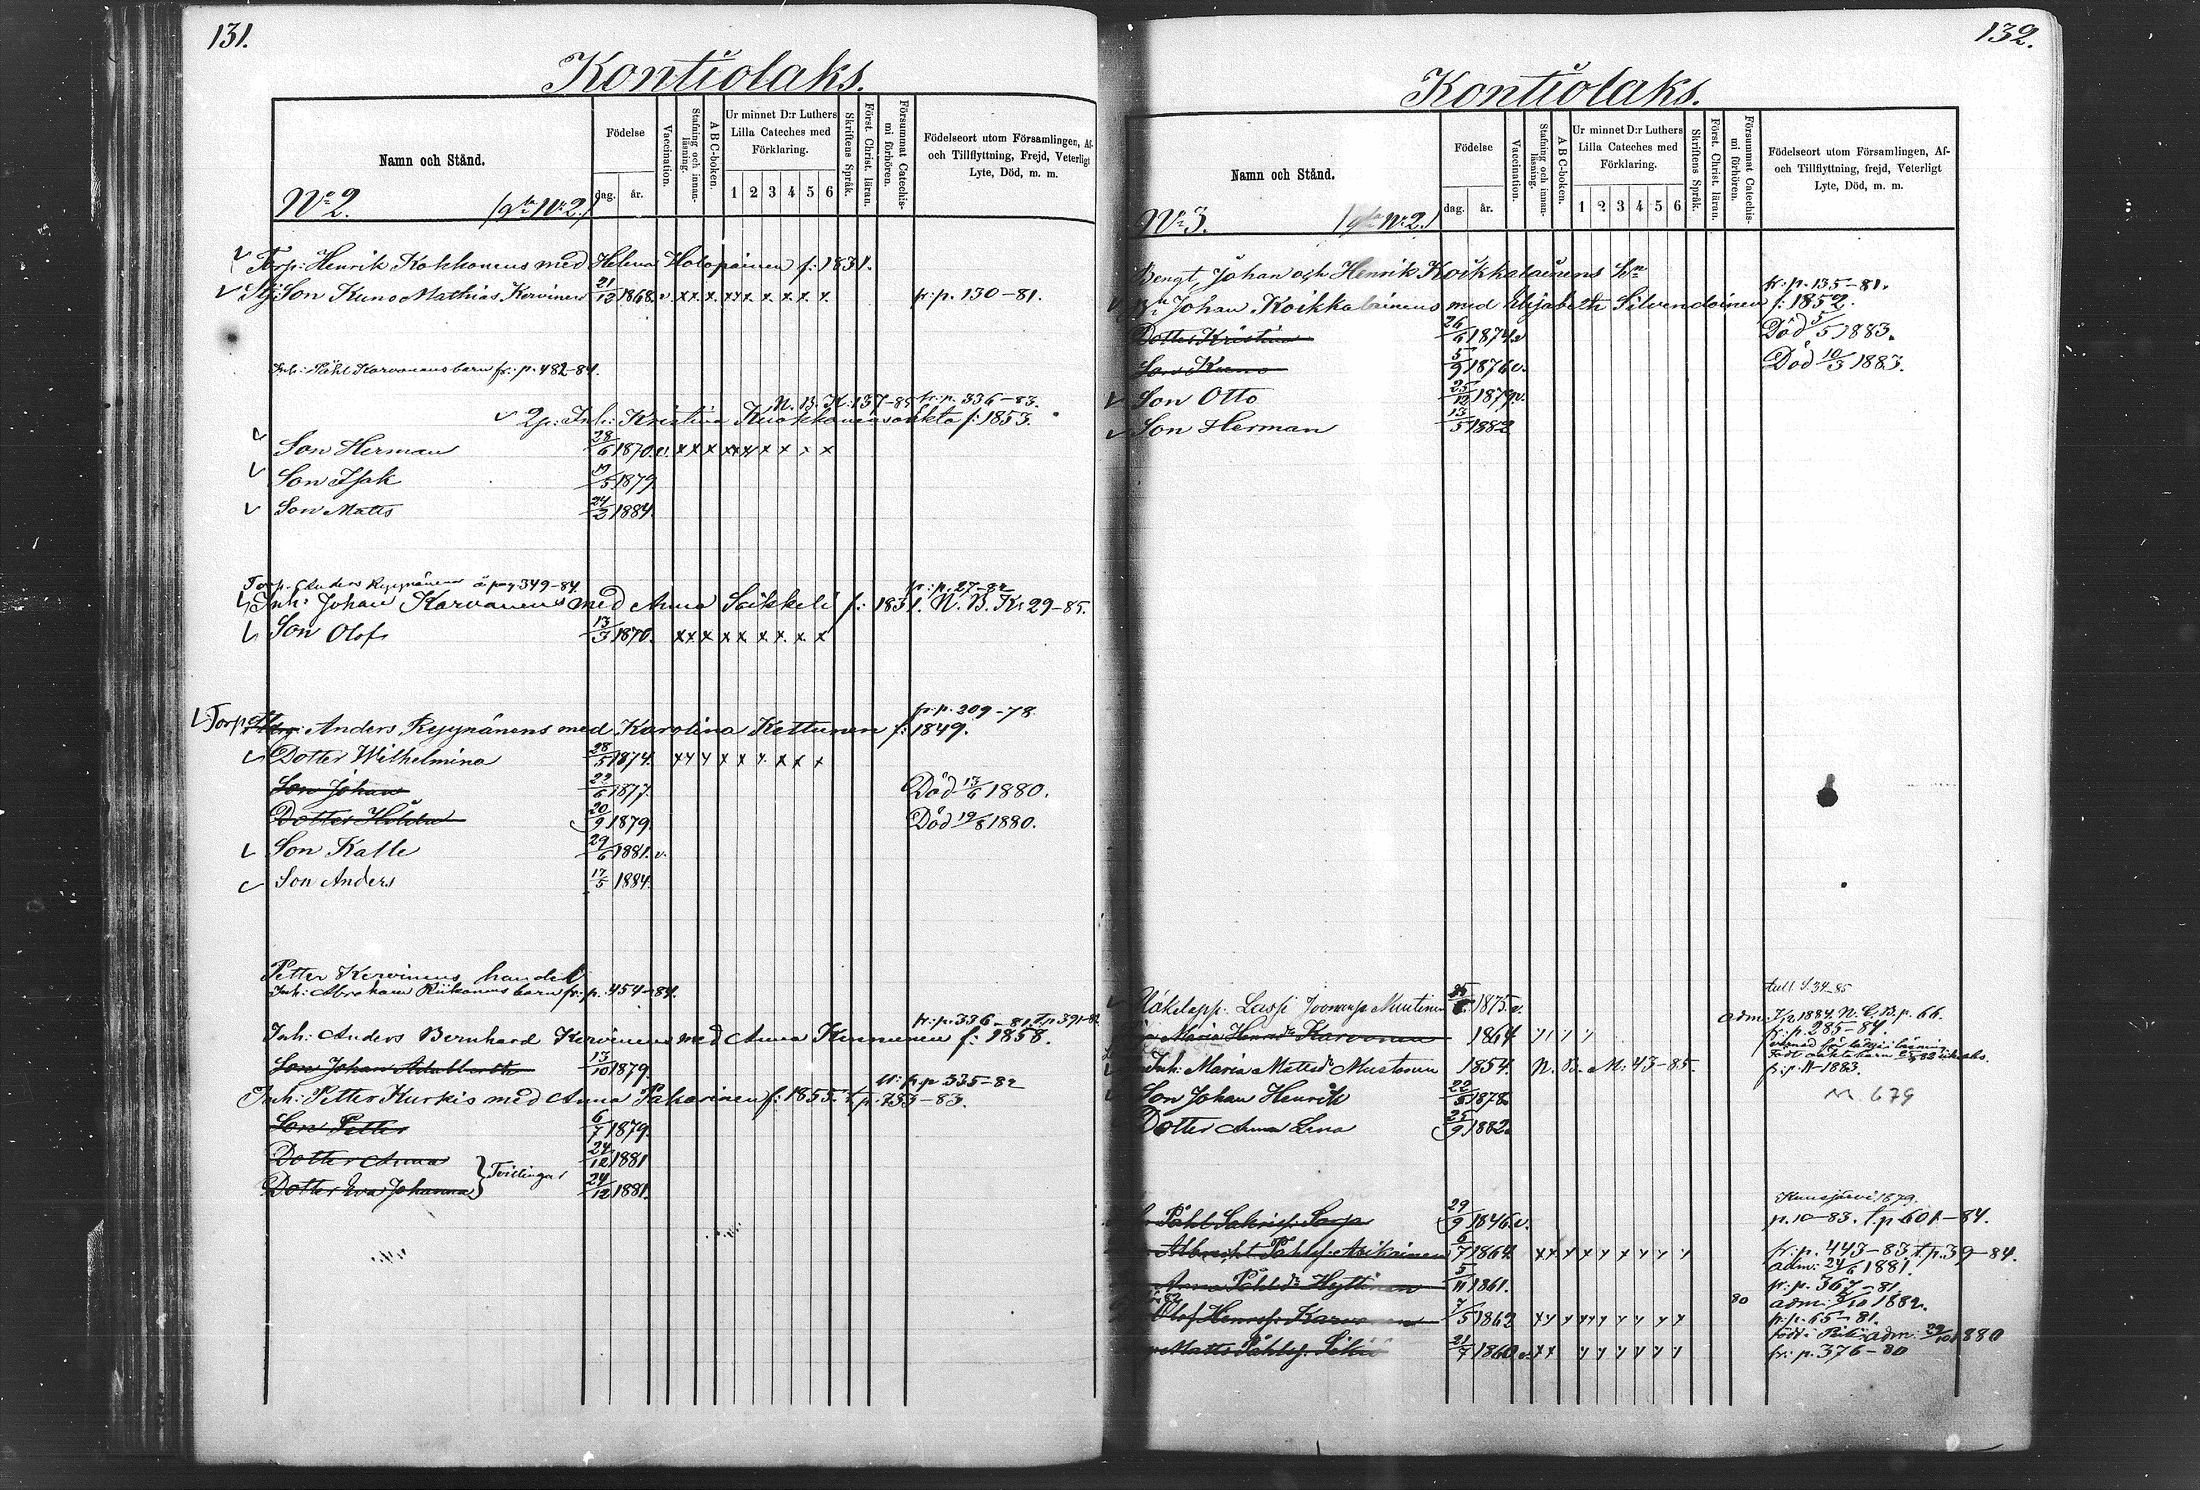 131.
Kontiolaks.
Namn och Stånd.
Födelse
dag. år.
Vaccination.
Stafning och innan-
läsning.
A B C-boken.
Ur minnet D:r Luthers
Lilla Cateches med
Förklaring.
1 2 3 4 5 6
Skriftens Språk.
Först. Christ. läran.
Försummat Catechis-
mi förhören.
Födelseort utom Församlingen, Af-
och Tillflyttning, Frejd, Veterligt
Lyte, Död, m. m.
No 2. /gla No 2./
Torp: Henrik Kokkonens med Helena Holopainen f: 1831.
Son Kuno Mathias Kervinen 21/12 1868. v. x x x. x x. x. x. x. x. fr: p. 130–81.
Inh: Påhl Karvonens barn fr: p. 482–84.
N. B. K: 137–85 fr: p. 336–83.
Inh: Kristina f: 1853.
Son Herman 28/6 1870. v. x x x x x x x x x
Son Isak 19/5 1879
Son Matts 24/3 1884.
Torp. Anders Ryynänen å pag 349–84
fr: p. 27–82
Inh: Johan Karvonens med Anna Sikkeli f: 1831. N. B. K: 29–85.
Son Olof 13/3 1870. x x x x x x x. x. x
fr: p. 209–78.
Torp: Anders Ryynänens med Karolina Kettunen f: 1849.
Dotter Wilhelmina 28/5 1874. x y y x x y. x x x
Son Johan 22/6 1877. Död 17/6 1880.
Dotter Hilda 20/9 1879. Död 19/8 1880.
Son Kalle 29/6 1881. v.
Son Anders 17/5 1884.
Petter Kervinens handel
Inh: Abraham Riikonens barn fr: p. 454–84.
fr: p. 336–81. T.p 391–82
Inh: Anders Bernhard Kervinens med Anna Kinnunen f: 1858.
Son Johan Adalbert 13/10 1879.
fr: p. 335–82
Inh: Petter Kurkis med Anna Pakarinen f: 1855. t. p. 733–83.
Son Petter 6/7 1879.
Dotter Anna 24/12 1881
Dotter Eva Johanna } Tvillingar 24/12 1881.
132.
Kontiolaks.
Namn och Stånd.
Födelse
dag. år.
Vaccination.
Stafning och innan-
läsning.
A B C-boken.
Ur minnet D:r Luthers
Lilla Cateches med
Förklaring.
1 2 3 4 5 6
Skriftens Språk.
Först. Christ. läran.
Försummat Catechis-
mi förhören.
Födelseort utom Församlingen, Af-
och Tillflyttning, frejd, Veterligt
Lyte, Död, m. m.
No 3. /gla No 2./
Bengt, Johan och Henrik Koikkalainens hn
fr: p. 135–81.
Johan Koikkalainens med Elisabeth Silvendoinen f: 1852.
Dotter Kristina 26/6 1874. v Död 5/5 1883.
Son Kuno 5/9 1876. v. Död 10/3 1883.
Son Otto 25/12 1879. v.
Son Herman 13/5 1882
Lassi Mustonen 1875. v.
adm. 1884. N. C. B. p. 66.
Maria Henrd:r Karvonen 1864 y y y y fr: p. 285–84.
Inh: Maria Mattsd:r Mustonen 1854. N. B. M: 43–85. 1883.
M 679
Son Johan Henrik 22/5 1878.
Dotter Anna Lena 25/9 1882.
1879.
Påhl Sarja 29/9 1846. v. p. 10–83. t. p 601–84.
Albrecht Påhlss: Asikainen 6/7 1864. x x y x y x y y y fr: p. 443–83. t. p. 39–84.
adm: 24/6 1881.
Anna Påhlsd:r Hyttinen 5/11 1861. fr: p. 367–81.
80 adm: 1882.
Olof Henrss: Karvonen 7/5 1862 x y y y y y y y y fr: p. 65–81.
adm: 29/10 1880
Matts Påhlss. 21/7 1860 v. x x y y y y y y fr: p. 376–80